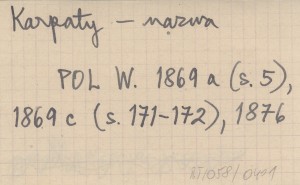 Karpaty – nazwa
POL W. 1869 a (s. 5),
1869 c (s. 171-172), 1876